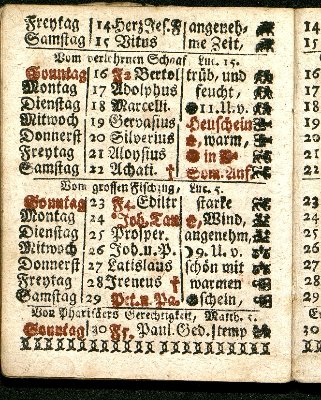 Freytag 14 Herz Jes. F angeneh-
Samstag 15 Vitus me Zeit,
Vom verlohrnen Schaaf Luc. 15.
Sonntag 16 F2 Bertol trüb, und
Montag 17 Adolphus feucht,
Dienstag 18 Marcelli. 11. U. v.
Mitwoch 19 Gervasius Heuschein
Donnerst 20 Silverius warm,
Freytag 21 Aloysius in
Samstag 22 Achati. † Som. Anf.
Vom grossen Fischzug, Luc. 5.
Sonntag 23 F4 Ediltr starke
Montag 24 Joh. Tau Wind,
Dienstag 25 Prosper. angenehm,
Mitwoch 26 Joh. u. P. 9. U. v.
Donnerst 27 Latislaus schön mit
Freytag 28 Ireneus † warmen
Samstag 29 Pet. u. Pa. schein,
Von Pharisäers Gerechtigkeit, Matth. 5.
Sonntag 30 Fr. Paul. Ged. temp